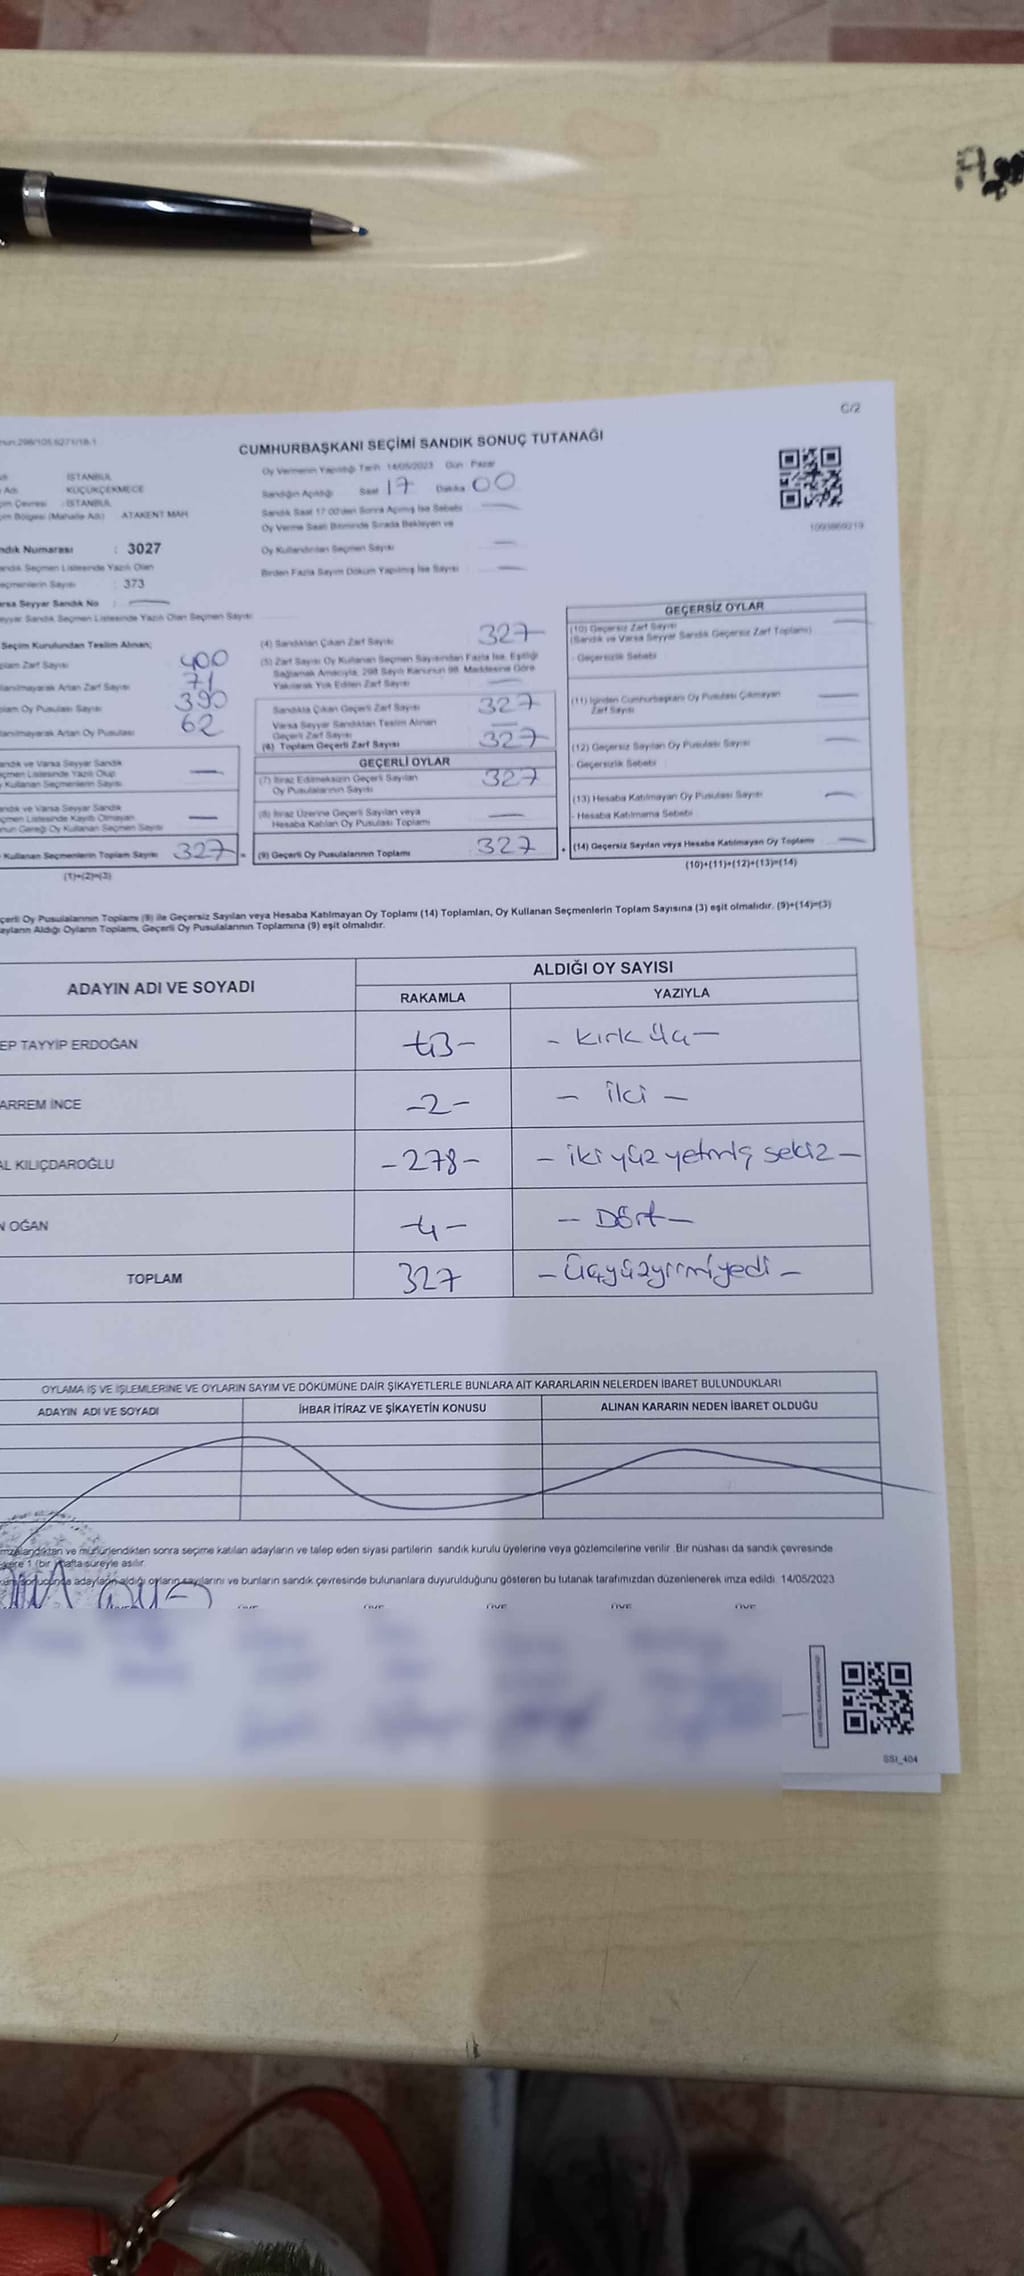 C/2
CUMHURBAŞKANI SEÇİMİ SANDIK SONUÇ TUTANAĞI
Oy Vermenin Yapıldığı Tarih 14/05/2023 Gün Pazar
İSTANBUL
KÜÇÜKÇEKMECE
Sandığın Açıldığı Saat 17 Dakika 00
İSTANBUL
ATAKENT MAH.
Sandık Saat 17.00'den Sonra Açılmış İse Sebebi
Oy Verme Saati Bitiminde Sırada Bekleyen ve
Oy Kullandırılan Seçmen Sayısı
Birden Fazla Sayım Döküm Yapılmış İse Sayısı
1093869219
Numarası : 3027
Seçmen Listesinde Yazılı Olan
Sayısı : 373
Seyyar Sandık No :
Sandık Seçmen Listesinde Yazılı Olan Seçmen Sayısı
Seçim Kurulundan Teslim Alınan;
Zarf Sayısı 400
Artan Zarf Sayısı 71
Oy Pusulası Sayısı 390
Artan Oy Pusulası 62
ve Varsa Seyyar Sandık
Listesinde Yazılı Olup
Kullanan Seçmenlerin Sayısı
ve Varsa Seyyar Sandık
Listesinde Kayıtlı Olmayan
Gereği Oy Kullanan Seçmen Sayısı
Kullanan Seçmenlerin Toplam Sayısı 327 =
(1)+(2)=(3)
(4) Sandıktan Çıkan Zarf Sayısı 327
(5) Zarf Sayısı Oy Kullanan Seçmen Sayısından Fazla İse, Eşitliği
Sağlamak Amacıyla, 298 Sayılı Kanunun 98. Maddesine Göre
Yakılarak Yok Edilen Zarf Sayısı
Sandıkta Çıkan Geçerli Zarf Sayısı 327
Varsa Seyyar Sandıktan Teslim Alınan
Geçerli Zarf Sayısı
(6) Toplam Geçerli Zarf Sayısı 327
GEÇERLİ OYLAR
(7) İtiraz Edilmeksizin Geçerli Sayılan
Oy Pusulalarının Sayısı 327
(8) İtiraz Üzerine Geçerli Sayılan veya
Hesaba Katılan Oy Pusulası Toplamı
(9) Geçerli Oy Pusulalarının Toplamı 327 +
GEÇERSİZ OYLAR
(10) Geçersiz Zarf Sayısı
(Sandık ve Varsa Seyyar Sandık Geçersiz Zarf Toplamı)
- Geçersizlik Sebebi
(11) İçinden Cumhurbaşkanı Oy Pusulası Çıkmayan
Zarf Sayısı
(12) Geçersiz Sayılan Oy Pusulası Sayısı
- Geçersizlik Sebebi
(13) Hesaba Katılmayan Oy Pusulası Sayısı
- Hesaba Katılmama Sebebi
(14) Geçersiz Sayılan veya Hesaba Katılmayan Oy Toplamı
(10)+(11)+(12)+(13)=(14)
Oy Pusulalarının Toplamı (9) ile Geçersiz Sayılan veya Hesaba Katılmayan Oy Toplamı (14) Toplamları, Oy Kullanan Seçmenlerin Toplam Sayısına (3) eşit olmalıdır. (9)+(14)=(3)
Aldığı Oyların Toplamı, Geçerli Oy Pusulalarının Toplamına (9) eşit olmalıdır.
ADAYIN ADI VE SOYADI
ALDIĞI OY SAYISI
RAKAMLA YAZIYLA
TAYYİP ERDOĞAN 43 - - kırk üç -
İNCE - 2 - - iki -
KILIÇDAROĞLU - 278 - - iki yüz yetmiş sekiz -
OĞAN - 4 - - Dört -
TOPLAM 327 - Üçyüzyirmiyedi -
OYLAMA İŞ VE İŞLEMLERİNE VE OYLARIN SAYIM VE DÖKÜMÜNE DAİR ŞİKAYETLERLE BUNLARA AİT KARARLARIN NELERDEN İBARET BULUNDUKLARI
ADAYIN ADI VE SOYADI İHBAR İTİRAZ VE ŞİKAYETİN KONUSU ALINAN KARARIN NEDEN İBARET OLDUĞU
ve mühürlendikten sonra seçime katılan adayların ve talep eden siyasi partilerin sandık kurulu üyelerine veya gözlemcilerine verilir. Bir nüshası da sandık çevresinde
1 (bir) hafta süreyle asılır.
adayların aldığı oyların sayılarını ve bunların sandık çevresinde bulunanlara duyurulduğunu gösteren bu tutanak tarafımızdan düzenlenerek imza edildi. 14/05/2023
SSI_404